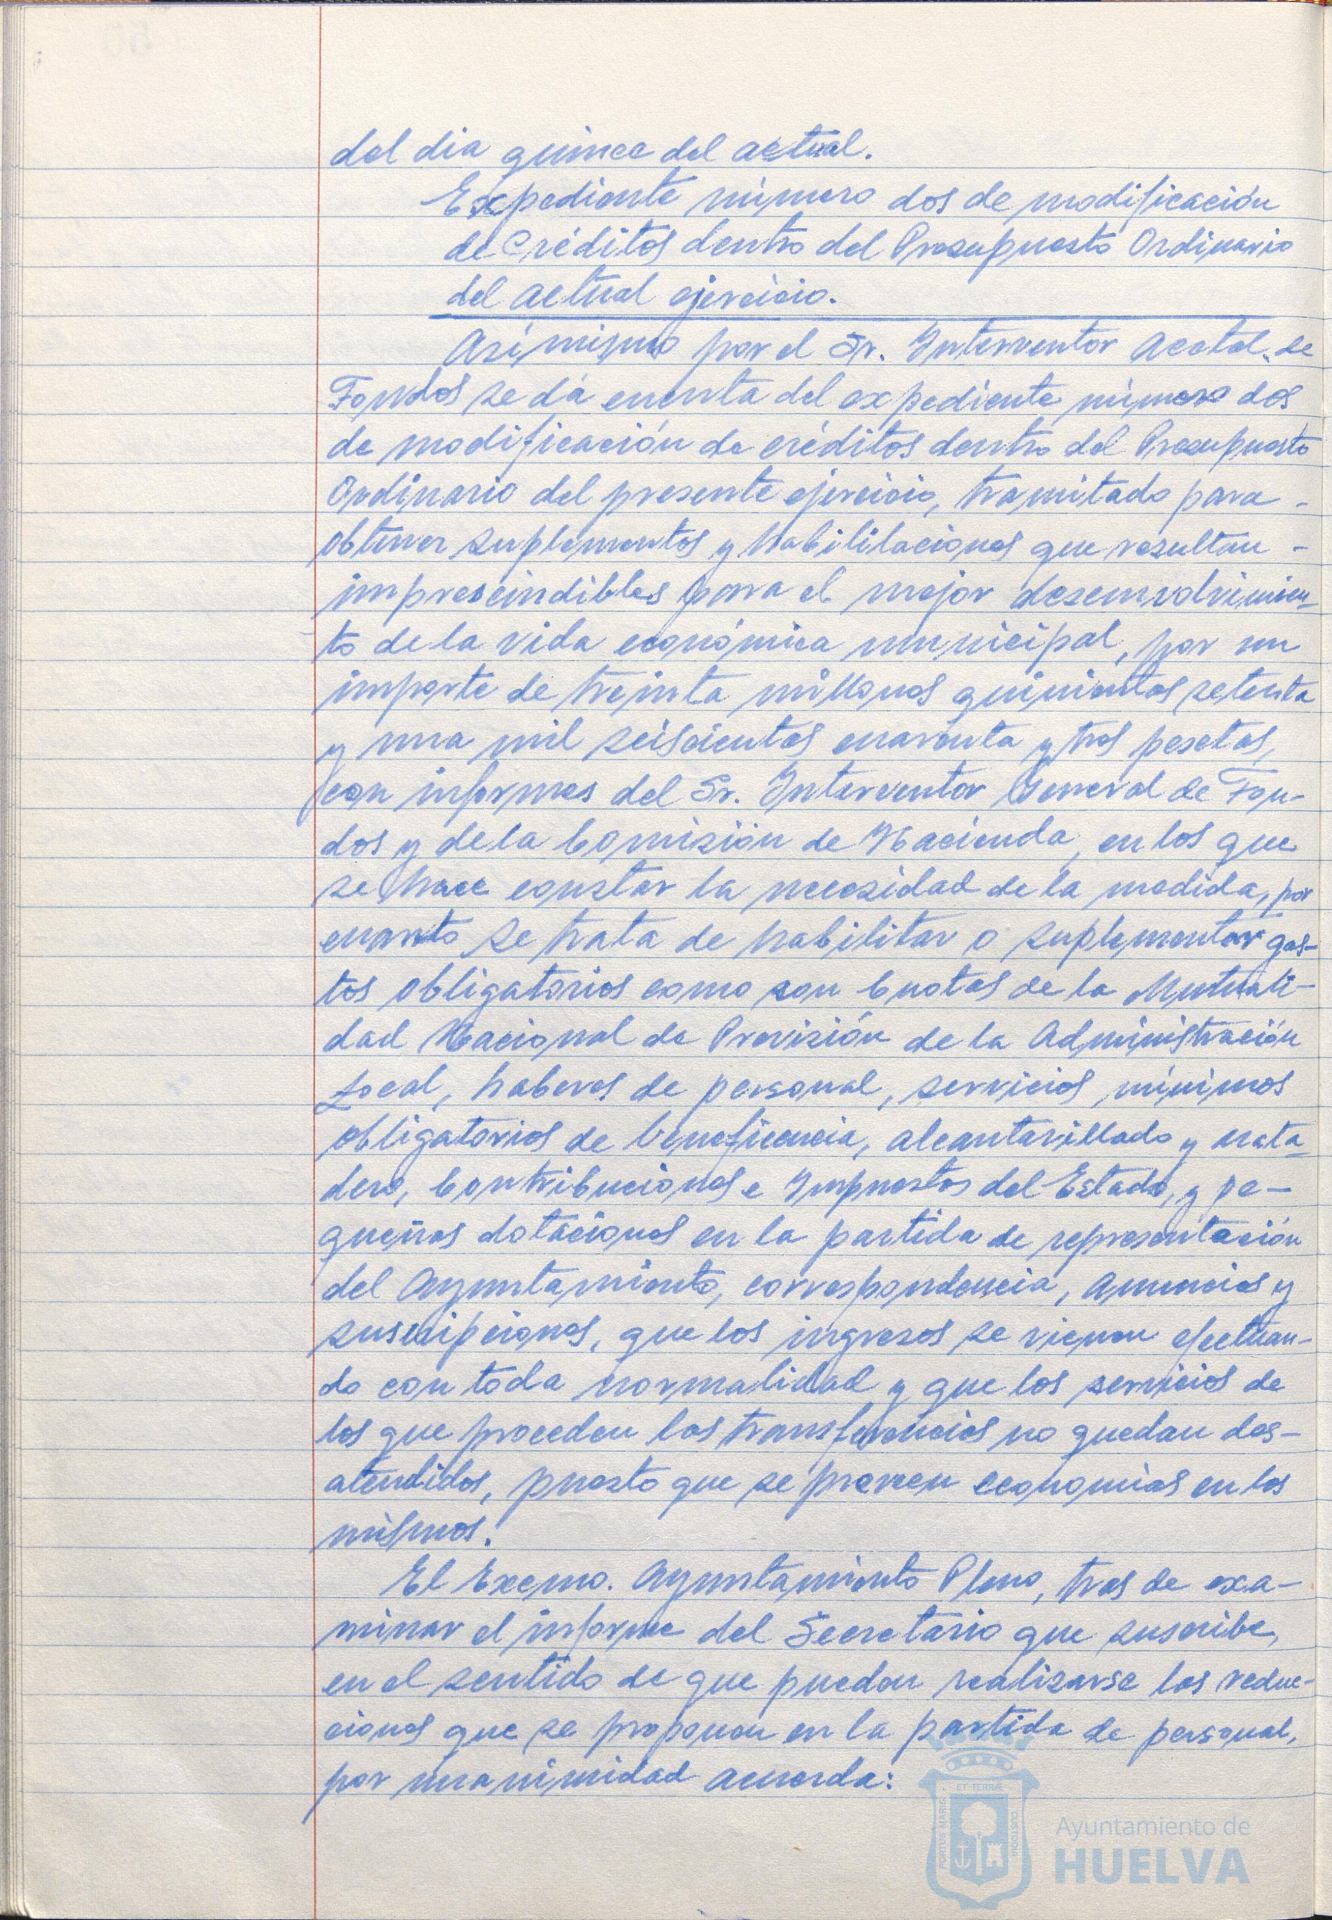 del dia quince del actual.
Expediente número dos de modificación
de Créditos dentro del Presupuesto Ordinario
del actual ejercicio.
Asimismo por el Sr. Interventor Acctal. de
Fondos se dá cuenta del expediente número dos
de modificación de créditos dentro del Presupuesto
Ordinario del presente ejercicio, tramitado para -
obtener suplementos y habilitaciones que resultan -
imprescindibles para el mejor desenvolvimien-
to de la vida económica municipal, por un
importe de treinta millones quinientas setenta
y una mil seiscientas cuarenta y tres pesetas,
con informes del Sr. Interventor General de Fon-
dos y de la Comisión de Hacienda, en los que
se hace constar la necesidad de la medida, por
cuanto se trata de habilitar o suplementar gas-
tos obligatorios como son Cuotas de la Mutuali-
dad Nacional de Previsión de la Administración
Local, haberes de personal, servicios mínimos
obligatorios de beneficencia, alcantarillado y mata-
dero, Contribuciones e Impuestos del Estado, y pe-
queñas dotaciones en la partida de representación
del Ayuntamiento, correspondencia, anuncios y
suscripciones, que los ingresos se vienen efectuan-
do con toda normalidad y que los servicios de
los que proceden las transferencias no quedan des-
atendidos, puesto que se preveen economías en los
mismos.
El Excmo. Ayuntamiento Pleno, tras de exa-
minar el informe del Secretario que suscribe,
en el sentido de que pueden realizarse las reduc-
ciones que se proponen en la partida de personal,
por unanimidad acuerda:
PORTUS MARIS ET TERRAE CUSTODIA
Ayuntamiento de
HUELVA